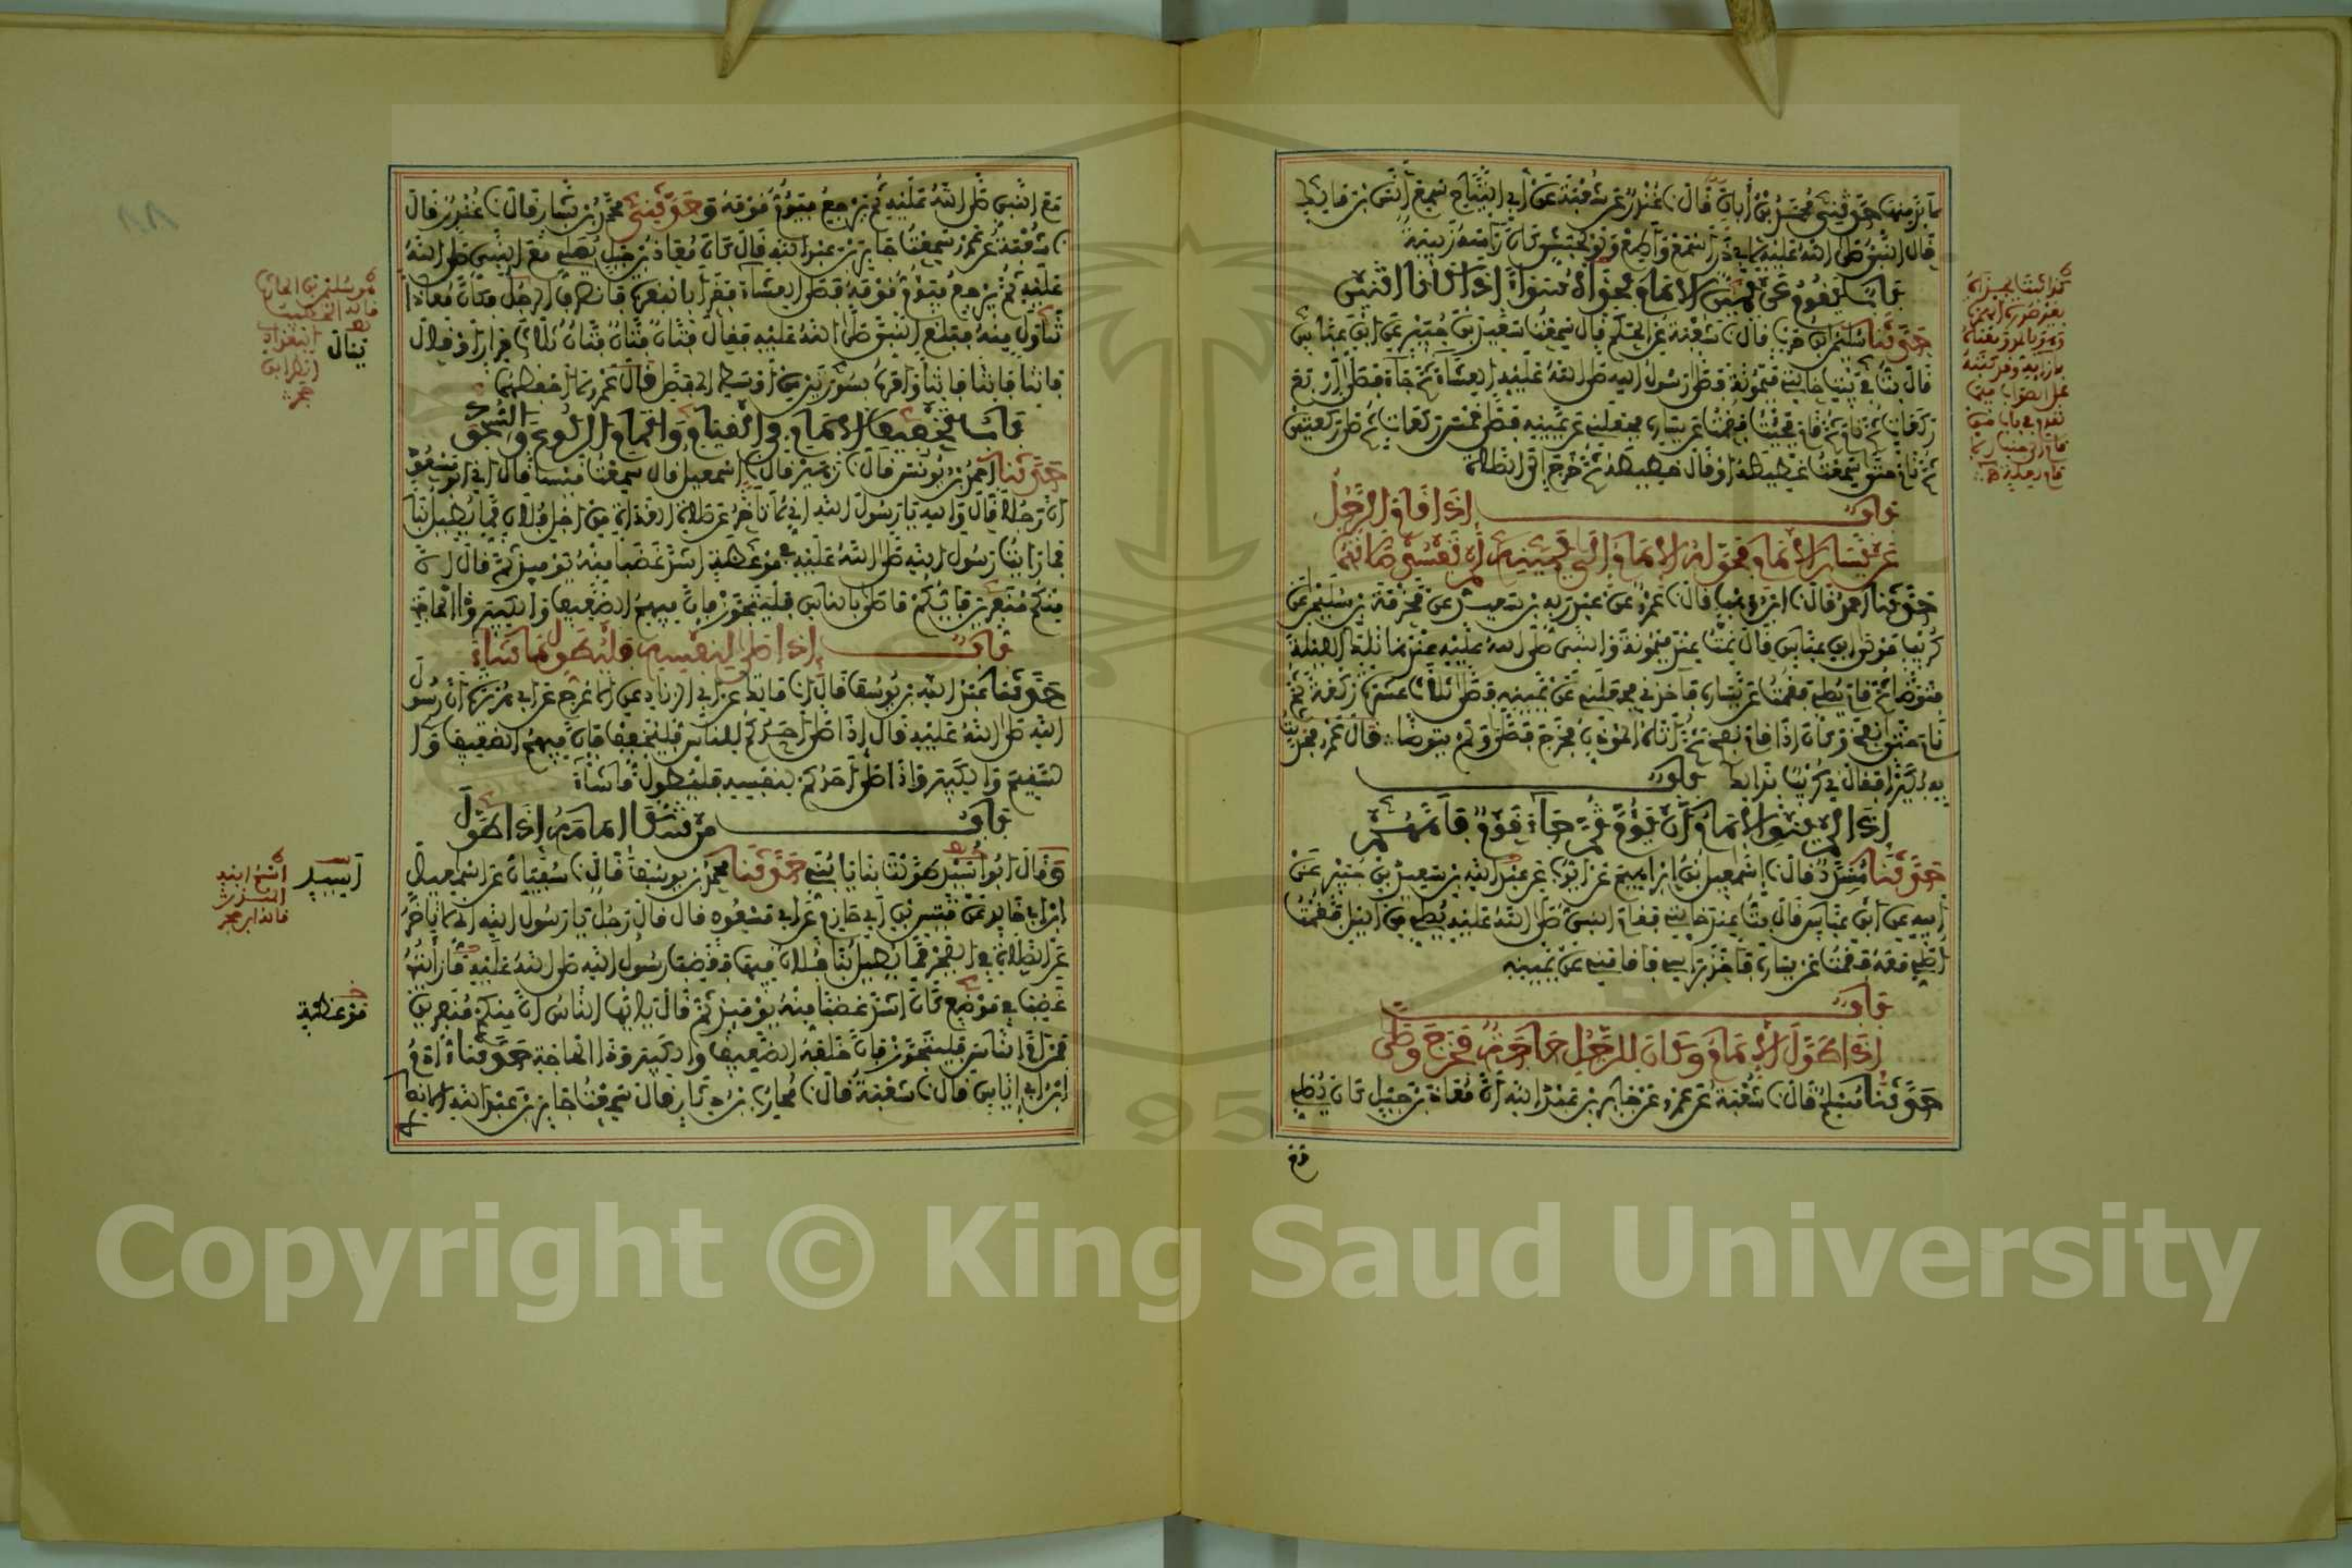 ما نزمنها حدثني محمد بن أبان قال نا غندر عن شعبة عن أبي التياح سمع أنس بن مالك
قال النبي صلى الله عليه لأبي ذر اسمع وأطع ولو لحبشي كأن رأسه زبيبة
باب يقوم عن يمين الإمام بحذائه سواء إذا كانا اثنين
حدثنا سليمان بن حرب قال نا شعبة عن الحكم قال سمعت سعيد بن جبير عن ابن عباس
قال بت في بيت خالتي ميمونة فصلى رسول الله صلى الله عليه العشاء ثم جاء فصلى أربع
ركعات ثم نام ثم قام فجئت فقمت عن يساره فجعلني عن يمينه فصلى خمس ركعات ثم صلى ركعتين
ثم نام حتى سمعت غطيطه أو قال خطيطه ثم خرج إلى الصلاة
باب إذا قام الرجل
عن يسار الإمام فحوله الإمام إلى يمينه لم تفسد صلاتهما
حدثنا أحمد قال نا ابن وهب قال نا عمرو عن عبد ربه بن سعيد عن مخرمة بن سليمن عن
كريب مولى ابن عباس قال نمت عند ميمونة والنبي صلى الله عليه عندها تلك الليلة
فتوضأ ثم قام يصلي فقمت عن يساره فأخذني فجعلني عن يمينه فصلى ثلاث عشرة ركعة ثم
نام حتى نفخ وكان إذا نام نفخ ثم أتاه المؤذن فخرج فصلى ولم يتوضأ قال عمرو فحدثت
به بكيرا فقال حدثني كريب بذلك باب
إذا لم ينو الإمام أن يؤم ثم جاء قوم فأمهم
حدثنا مسدد قال نا إسمعيل بن إبراهيم عن أيوب عن عبد الله بن سعيد بن جبير عن
أبيه عن ابن عباس قال بت عند خالتي فقام النبي صلى الله عليه يصلي من الليل فقمت
أصلي معه فقمت عن يساره فأخذ برأسي فأقامني عن يمينه
باب
إذا طول الإمام وكان للرجل حاجة فخرج وصلى
حدثنا مسلم قال نا شعبة عن عمرو عن جابر بن عبد الله أن معاذ بن جبل كان يصلي
مع
مع النبي صلى الله عليه ثم يرجع فيؤم قومه وحدثني محمد بن بشار قال نا غندر قال
نا شعبة عن عمرو سمعت جابر بن عبد الله قال كان معاذ بن جبل يصلي مع النبي صلى الله
عليه ثم يرجع فيؤم قومه فصلى العشاء فقرأ بالبقرة فانصرف الرجل فكان معاذا
تناول منه فبلغ النبي صلى الله عليه فقال فتان فتان فتان ثلاث مرار أو قال
فاتنا فاتنا فاتنا وأمره بسورتين من أوسط المفصل قال عمرو لا أحفظهما
باب تخفيف الإمام في القيام وإتمام الركوع والسجود
حدثنا أحمد بن يونس قال نا زهير قال نا إسمعيل قال سمعت قيسا قال أخبرني أبو مسعود
أن رجلا قال والله يا رسول الله إني لأتأخر عن صلاة الغداة من أجل فلان مما يطيل بنا
فما رأيت رسول الله صلى الله عليه في موعظة أشد غضبا منه يومئذ ثم قال إن
منكم منفرين فأيكم ما صلى بالناس فليتجوز فإن فيهم الضعيف والكبير وذا الحاجة
باب إذا صلى لنفسه فليطول ما شاء
حدثنا عبد الله بن يوسف قال نا مالك عن أبي الزناد عن الأعرج عن أبي هريرة أن رسول
الله صلى الله عليه قال إذا صلى أحدكم للناس فليخفف فإن فيهم الضعيف وا
لسقيم والكبير وإذا صلى أحدكم لنفسه فليطول ما شاء
باب من شكا إمامه إذا طول
وقال أبو أسيد طولت بنا يا بني حدثنا محمد بن يوسف قال نا سفيان عن إسمعيل
ابن أبي خالد عن قيس بن أبي حازم عن أبي مسعود قال قال رجل يا رسول الله إني لأتأخر
عن الصلاة في الفجر مما يطيل بنا فلان فيها فغضب رسول الله صلى الله عليه ما رأيته
غضب في موضع كان أشد غضبا منه يومئذ ثم قال يا أيها الناس إن منكم منفرين
فمن أم الناس فليتجوز فإن خلفه الضعيف والكبير وذا الحاجة حدثنا آدم
ابن أبي إياس قال نا شعبة قال نا محارب بن دثار قال سمعت جابر بن عبد الله الأنصا
ينال
أسيد
موعظة